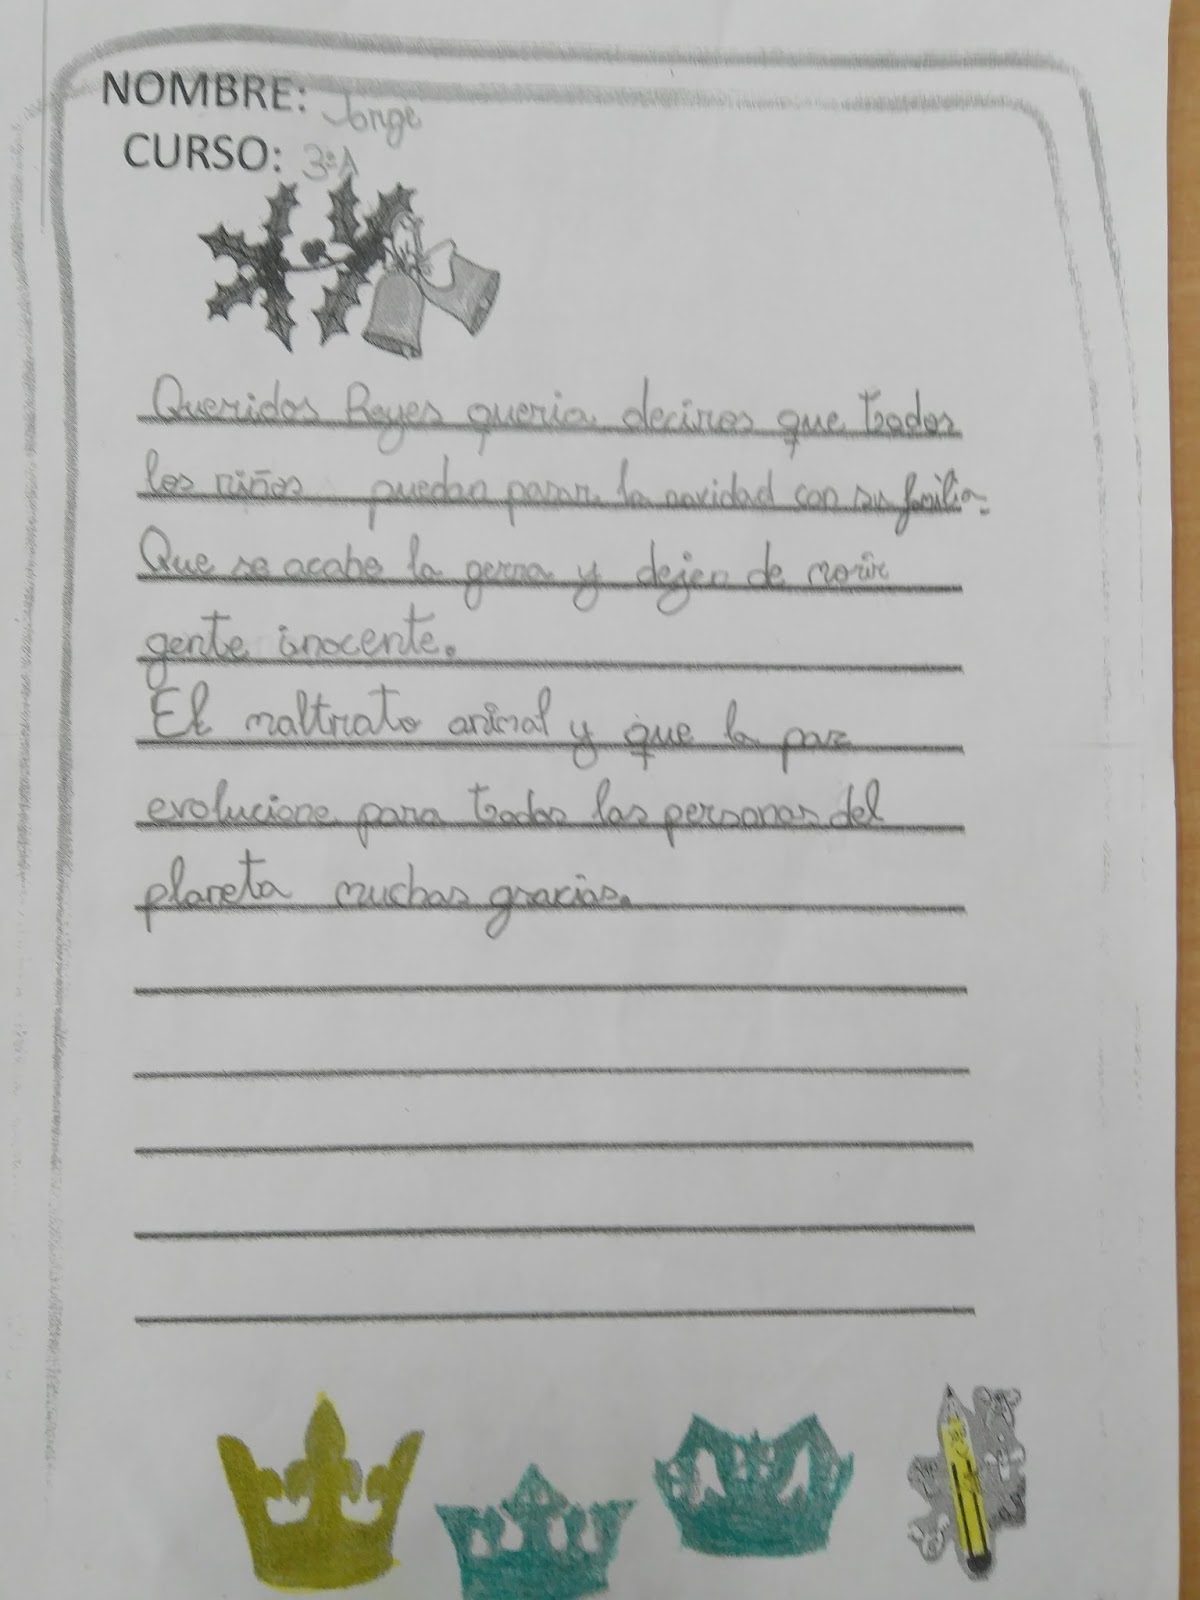 NOMBRE: Jorge
CURSO: 3ºA
Queridos Reyes queria deciros que todos
los niños puedan pasar la navidad con su familia.
Que se acabe la gerra y dejen de morir
gente inocente.
El maltrato animal y que la paz
evolucione para todas las personas del
planeta muchas gracias.